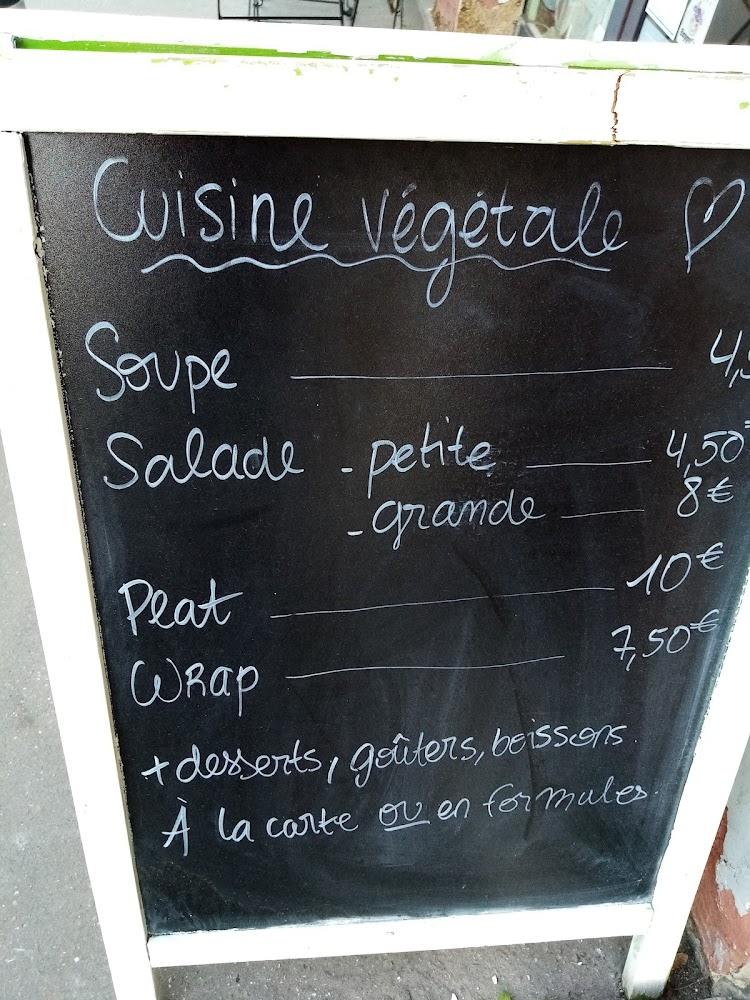 Cuisine végétale
Soupe 4,5
Salade - petite 4,50€
- grande 8€
Plat 10€
WRAP 7,50€
+ desserts, goûters, boissons.
À la carte ou en formules.